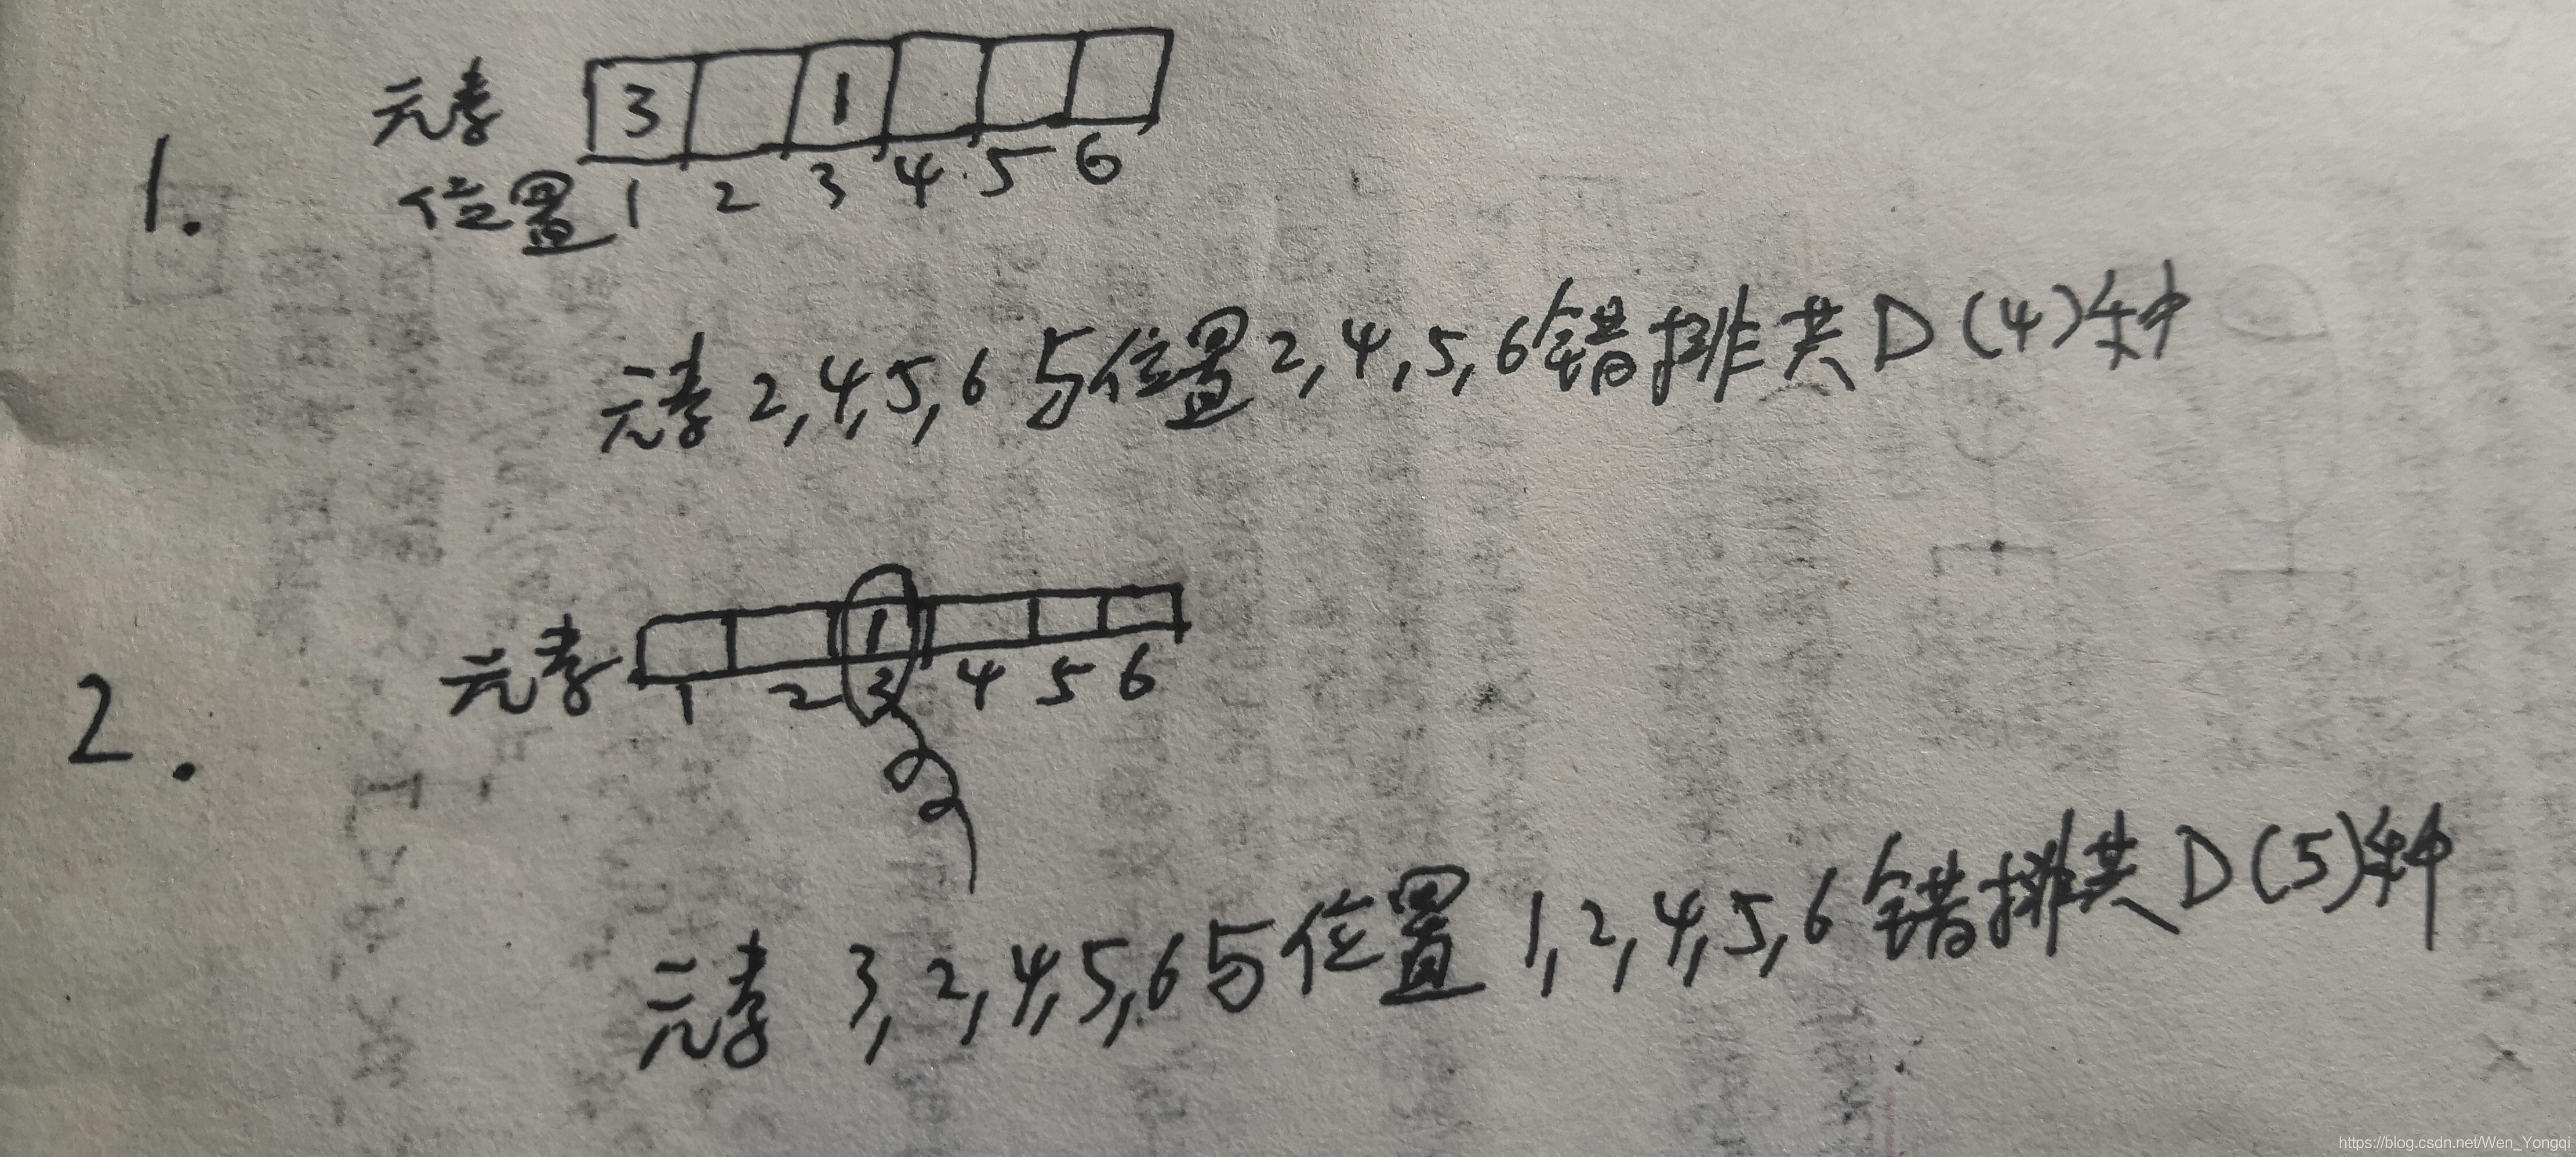 1.
元素 3 1
位置 1 2 3 4 5 6
元素 2,4,5,6 与位置 2,4,5,6 错排共 D(4)种
2.
元素 1
1 2 3 4 5 6
元素 3,2,4,5,6 与位置 1,2,4,5,6 错排共 D(5)种
https://blog.csdn.net/Wen_Yongqi